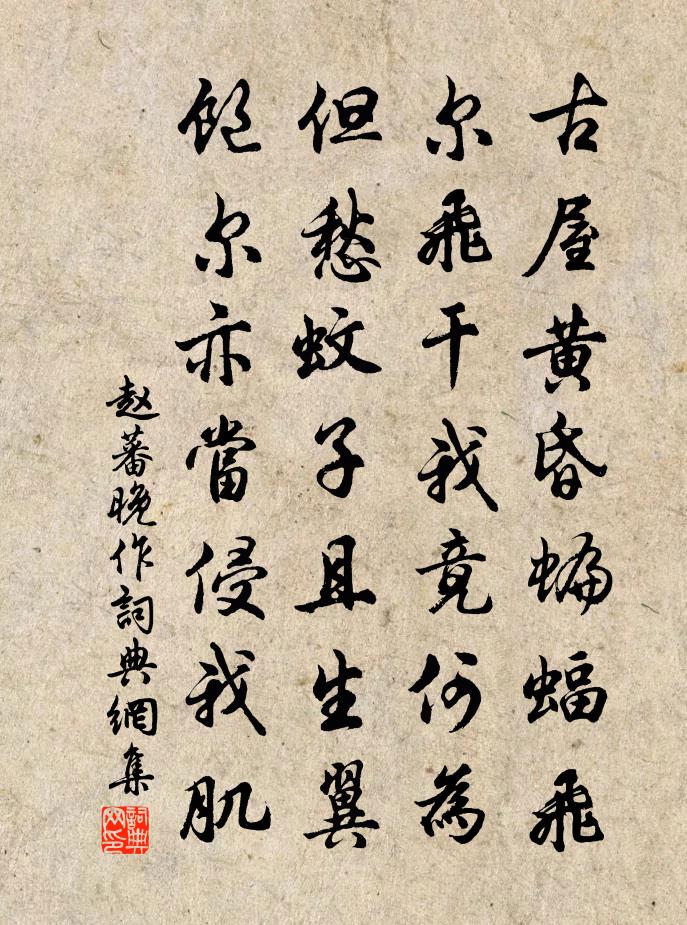 古屋黄昏蝙蝠飛
尔飛干我竟何為
但愁蚊子且生翼
飽尔亦當侵我肌
赵蕃晚作詞典網集
詞典网印